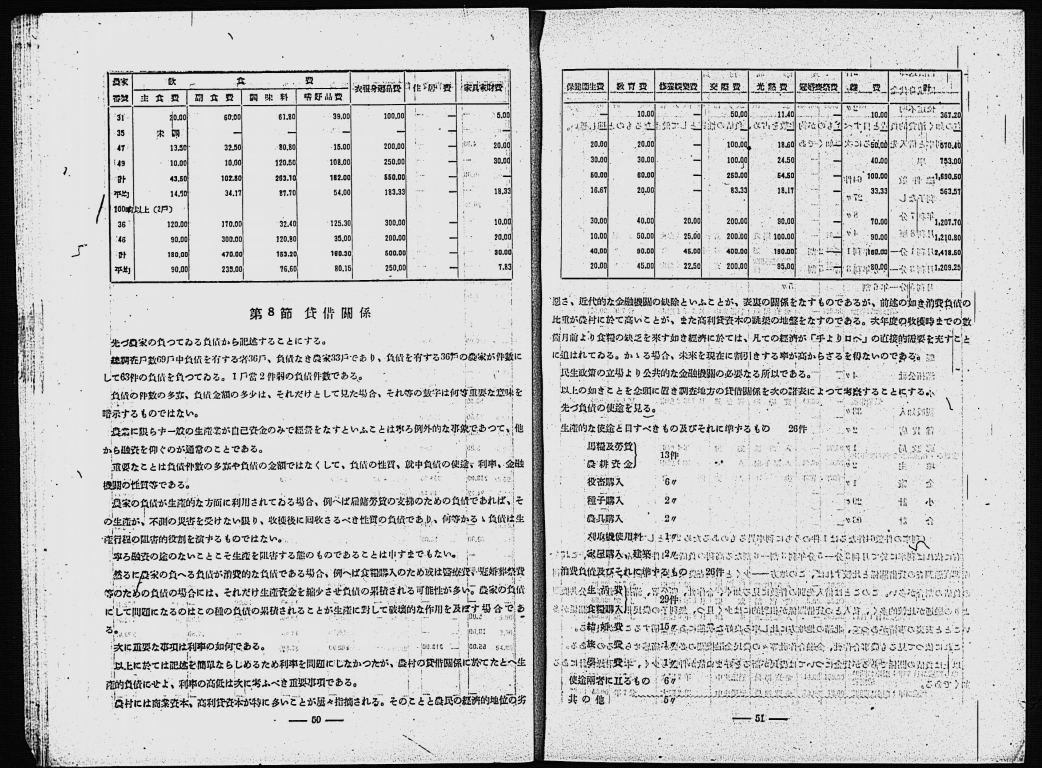 農家番號 飲食費 主食費 副食費 調味料 嗜好品費 衣服身廻品費 住居費 家具家財費
31 20.00 60.00 61.80 39.00 100.00 — 5.00
35 未調 — — — — — —
47 13.50 32.50 80.80 15.00 200.00 — 20.00
49 10.00 10.00 120.50 108.00 250.00 — 30.00
計 43.50 102.50 263.10 162.00 550.00 —
平均 14.50 34.17 87.70 54.00 183.33 — 18.33
100畝以上(2戶)
36 120.00 170.00 32.40 125.30 300.00 — 10.00
46 90.00 300.00 120.80 35.00 200.00 — 20.00
計 180.00 470.00 153.20 160.30 500.00 — 30.00
平均 90.00 235.00 76.60 80.15 250.00 — 7.83
第8節 貸借關係
先づ農家の負つてゐる負債から記述することにする。
總調査戶數69戶中負債を有する者36戶、負債なき農家33戶であり、負債を有する36戶の農家が件數に
して63件の負債を負つてゐる。1戶當2件弱の負債件數である。
負債の件數の多寡、負債金額の多少は、それだけとして見た場合、それ等の數字は何等重要な意味を
暗示するものではない。
農業に限らず一般の生產業が自己資金のみで經營をなすといふことは寧ろ例外的な事象であつて、他
から融資を仰ぐのが通常のことである。
重要なことは負債件數の多寡や負債の金額ではなくして、負債の性質、就中負債の使途、利率、金融
機關の性質等である。
農家の負債が生產的な方面に利用されてゐる場合、例へば雇傭勞賃の支拂のための負債であれば、そ
の生產が、不測の災害を受けない限り、收穫後に回收さるべき性質の負債であり、何等かゝる負債は生
產行程の阻害的役割を演ずるものではない。
寧ろ融資の途のないことこそ生產を阻害する態のものであることは申すまでもない。
然るに農家の負へる負債が消費的な負債である場合、例へば食糧購入のため或は醫療費、冠婚葬祭費
等のための負債の場合には、それだけ生產資金を縮少せ負債の累積される可能性が多い。農家の負債
にして問題になるのはこの種の負債の累積されることが生產に對して破壞的な作用を及ぼす場合であ
る。
次に重要な事項は利率の如何である。
以上に於ては記述を簡單ならしめるため利率を問題にしなかつたが、農村の貸借關係に於てたとへ生
產的負債にせよ、利率の高低は次に考ふべき重要事項である。
農村には商業資本、高利貸資本が特に多いことが屢々指摘される。そのことと農民の經濟的地位の劣
— 50 —
保健衞生費 敎育費 修養娛樂費 交際費 光熱費 冠婚葬祭費 雜費 計
— 10.00 — 50.00 11.40 — 10.00 367.20
20.00 20.00 — 100.00 18.60 —
30.00 30.00 — 100.00 24.50 — 40.00 753.00
50.00 60.00 — 250.00 54.50 — 100.00
16.67 20.00 — 83.33 18.17 — 33.33 563.57
30.00 40.00 20.00 200.00 80.00 — 70.00 1,207.70
10.00 50.00 25.00 200.00 100.00 — 90.00 1,210.80
40.00 90.00 45.00 400.00 190.00 — 160.00 2,418.50
20.00 45.00 22.50 200.00 95.00 — 80.00 1,209.25
惡さ、近代的な金融機關の缺除といふことが、表裏の關係をなすものであるが、前述の如き消費負債の
比重が農村に於て高いことが、また高利貸資本の跳梁の地盤をなすのである。次年度の收穫時までの數
箇月前より食糧の缺乏を來す如き經濟に於ては、凡ての經濟が「手より口へ」の直接的需要を充すこと
に追はれてゐる。かゝる場合、未來を現在に割引きする率が高からざるを得ないのである。
民生政策の立場より公共的な金融機關の必要なる所以である。
以上の如きことを念頭に置き調査地方の貸借關係を次の諸表によつて考察することにする。
先づ負債の使途を見る。
生產的な使途と目すべきもの及びそれに準ずるもの 26件
馬糧及勞賃
農耕資金 13件
役畜購入 6〃
種子購入 2〃
農具購入 2〃
利取機使用料 1〃
家屋購入、建築 2〃
消費負債及びそれに準ずるもの 26件
生活費
食糧購入 29件
結婚費 15〃
使途兩者に亙るもの 6〃
其の他 5〃
— 51 —